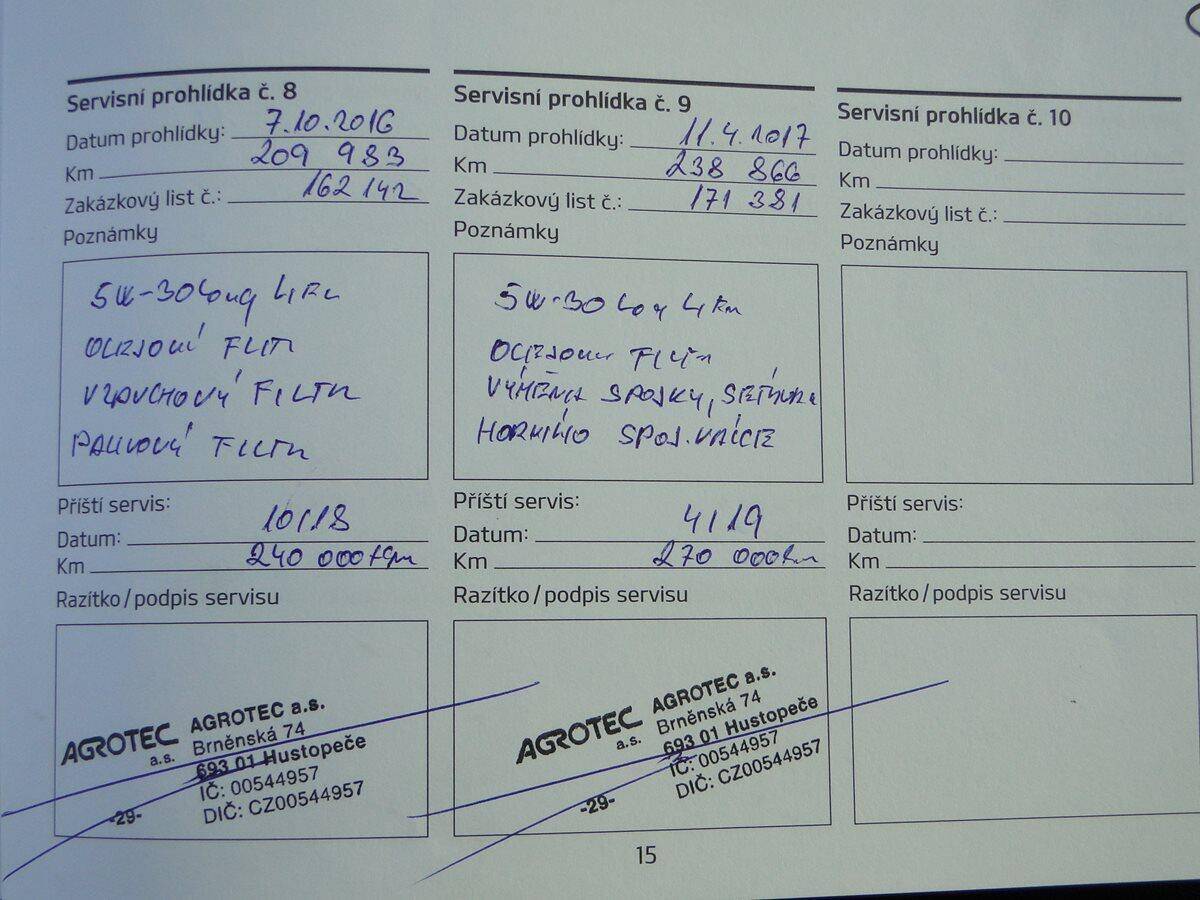 Servisní prohlídka č. 8
Datum prohlídky: 7.10.2016
Km 209 983
Zakázkový list č.: 162 142
Poznámky
5W-30 Long 4
OLEJOVÝ FILTR
VZDUCHOVÝ FILTR
PALIVOVÝ FILTR
Příští servis:
Datum: 10/18
Km 240 000 km
Razítko / podpis servisu
AGROTEC a.s.
AGROTEC a.s.
Brněnská 74
693 01 Hustopeče
IČ: 00544957
DIČ: CZ00544957
-29-
Servisní prohlídka č. 9
Datum prohlídky: 11.4.2017
Km 238 866
Zakázkový list č.: 171 381
Poznámky
5W-30 Long 4
OLEJOVÝ FILTR
VÝMĚNA SPOJKY, SETRVA
HORNÍHO SPOJ. VÁLCE
Příští servis:
Datum: 4/19
Km 270 000 km
Razítko / podpis servisu
AGROTEC a.s.
AGROTEC a.s.
Brněnská 74
693 01 Hustopeče
IČ: 00544957
DIČ: CZ00544957
-29-
Servisní prohlídka č. 10
Datum prohlídky:
Km
Zakázkový list č.:
Poznámky
Příští servis:
Datum:
Km
Razítko / podpis servisu
15